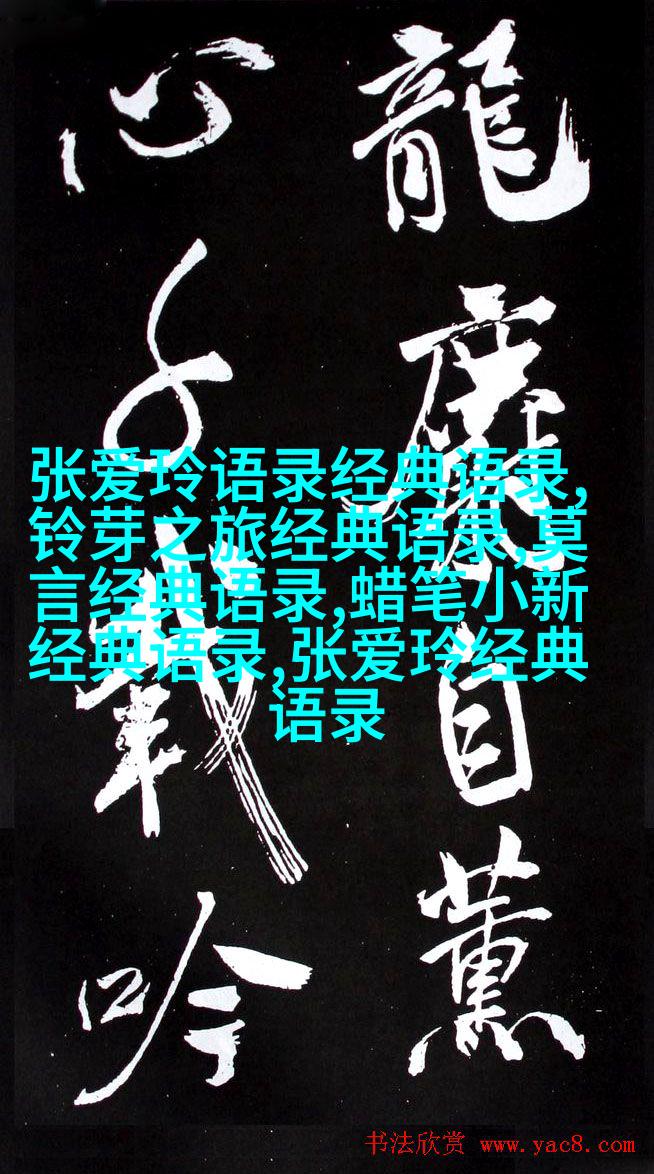 龍麝自薰
心千載吟
张爱玲语录经典语录,
铃芽之旅经典语录,莫
言经典语录,蜡笔小新
经典语录,张爱玲经典
语录
书法欣赏 www.yac8.com